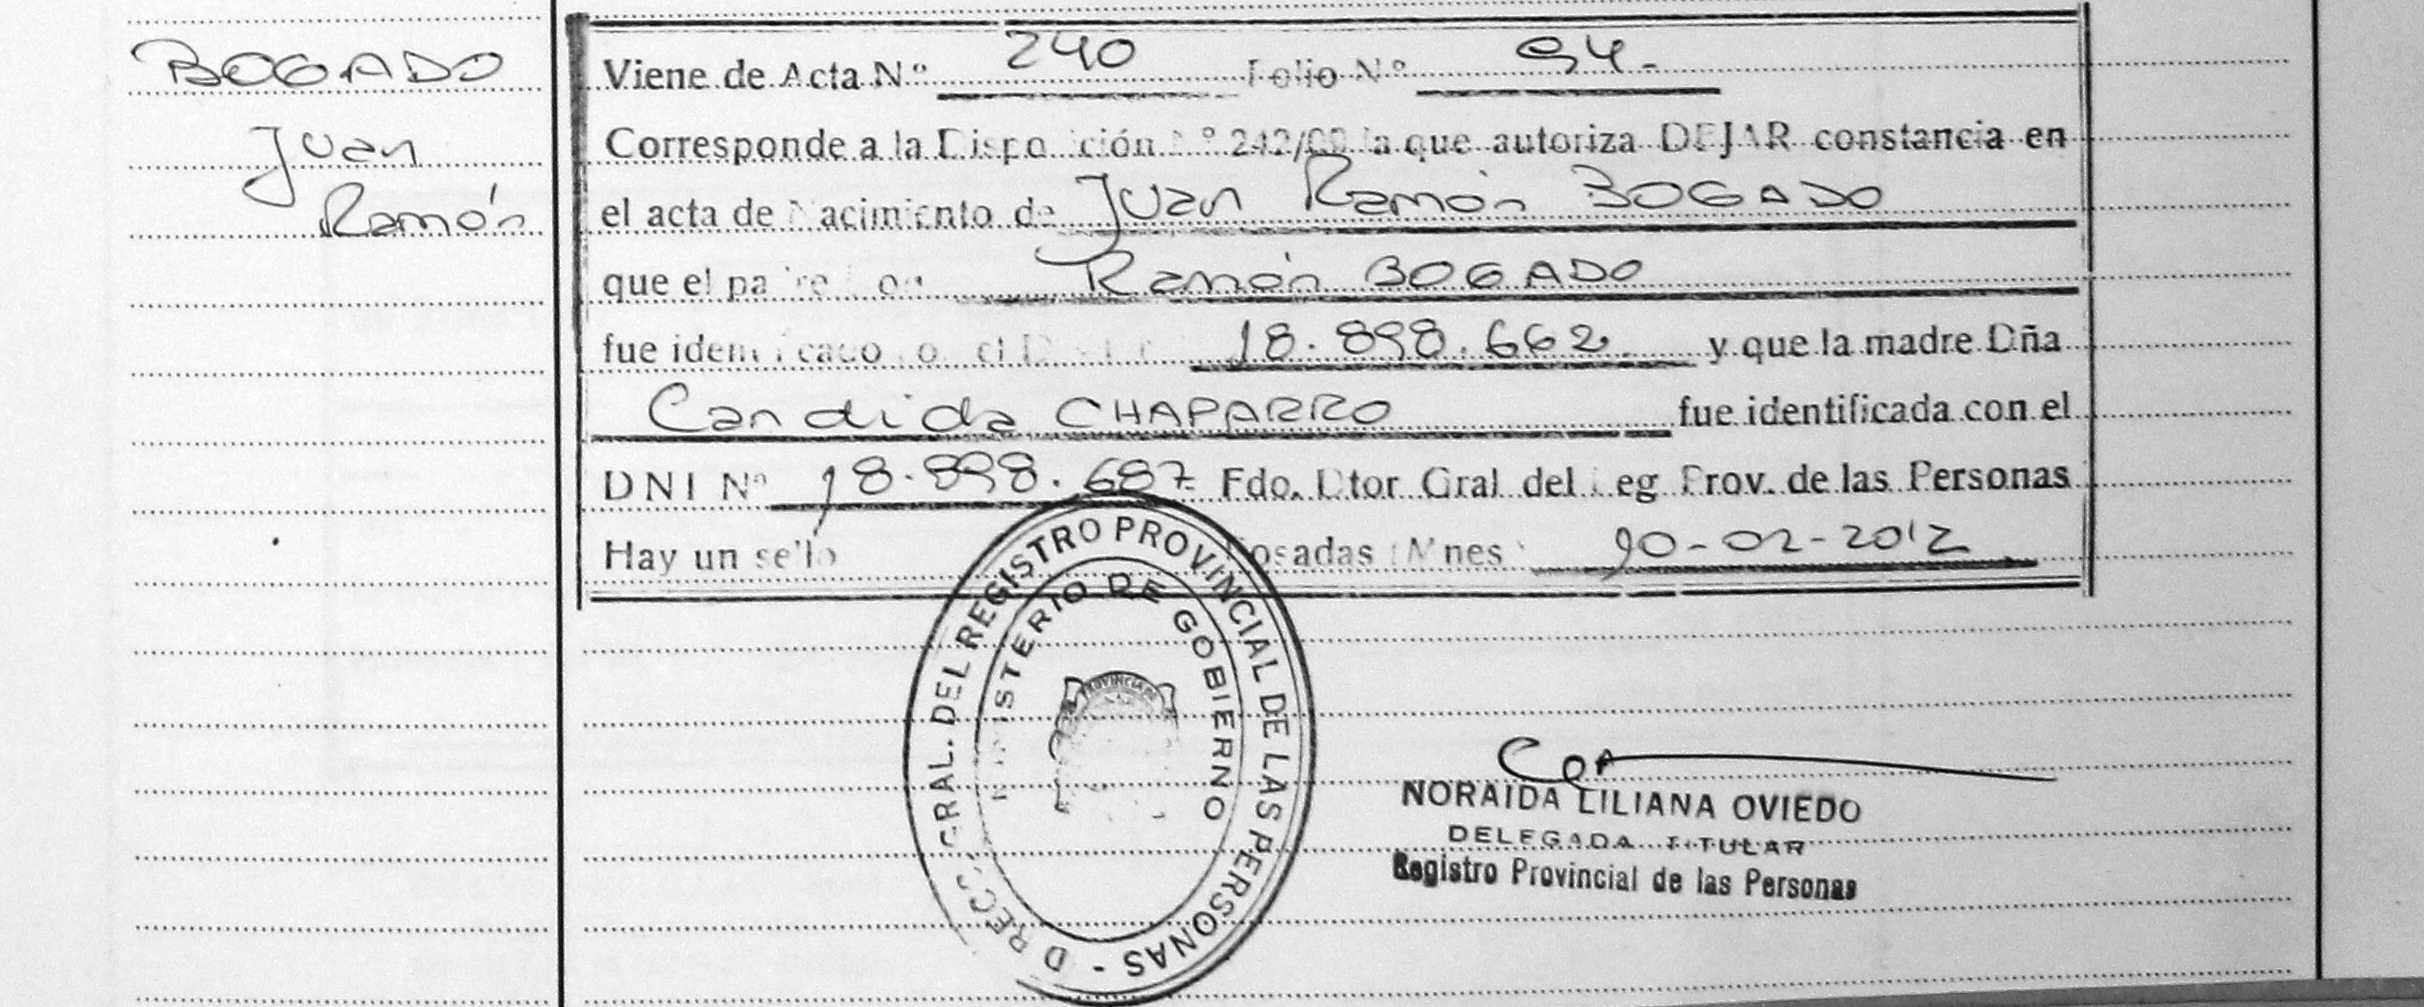 BOGADO
Juan
Ramón
Viene de Acta N.º 240 Folio Nº 94.
Corresponde a la Disposición Nº 242/00 la que autoriza DEJAR constancia en
el acta de Nacimiento de Juan Ramón BOGADO
que el padre Don Ramón BOGADO
fue identificado con el 18.898.662 y que la madre Dña
Candida CHAPARRO fue identificada con el
DNI Nº 18.898.687 Fdo. Dtor Gral del Reg Prov. de las Personas
Hay un sello Posadas (Mnes) 10-02-2012
DIRECC. GRAL. DEL REGISTRO PROVINCIAL DE LAS PERSONAS -
MINISTERIO DE GOBIERNO
PROVINCIA DE
NORAIDA LILIANA OVIEDO
DELEGADA TITULAR
Registro Provincial de las Personas